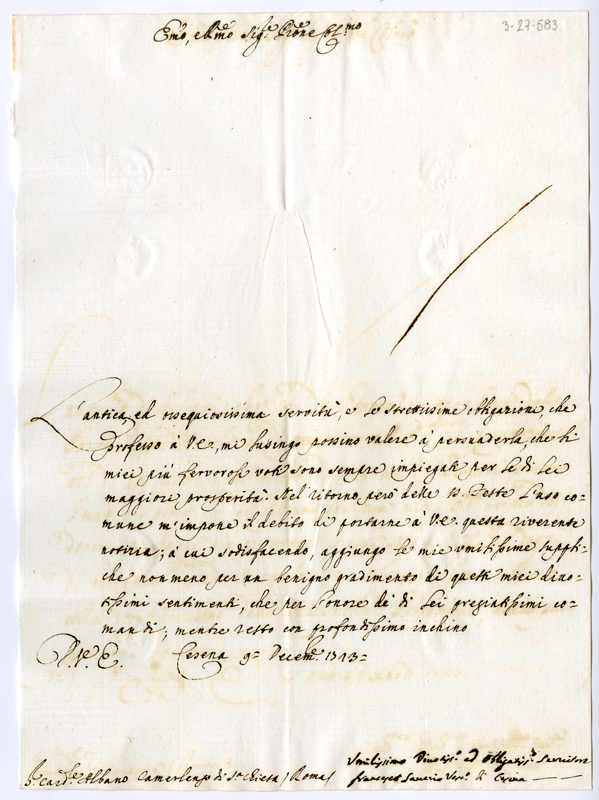 3-27-583
Emo, e Rmo Sigr. Prone Colmo
L'antica, ed ossequiosissima servitù, e le strettissime obligazioni, che
professo à V.E., mi lusingo possino valere à persuaderla, che li
miei più fervorosi voti sono sempre impiegati per le di Lei
maggiori prosperità. Nel ritorno però delle S. Feste l'uso co=
mune m'impone il debito di portarne à V.E. questa riverente
notizia; à cui sodisfacendo, aggiungo le mie umilissime suppli=
che non meno per un benigno gradimento di questi miei divo=
tissimi sentimenti, che per l'onore de' di Lei pregiatissimi co=
mandi; mentre resto con profondissimo inchino
D. V. E. Cesena 9= Decemb. 1743=
Sr. Cardle. Albano Camerlengo di Sta. Chiesa / Roma /
Umilissimo Divotiss. ed Obligatiss. Servitore
Francesco Saverio Vesc. di Cesena